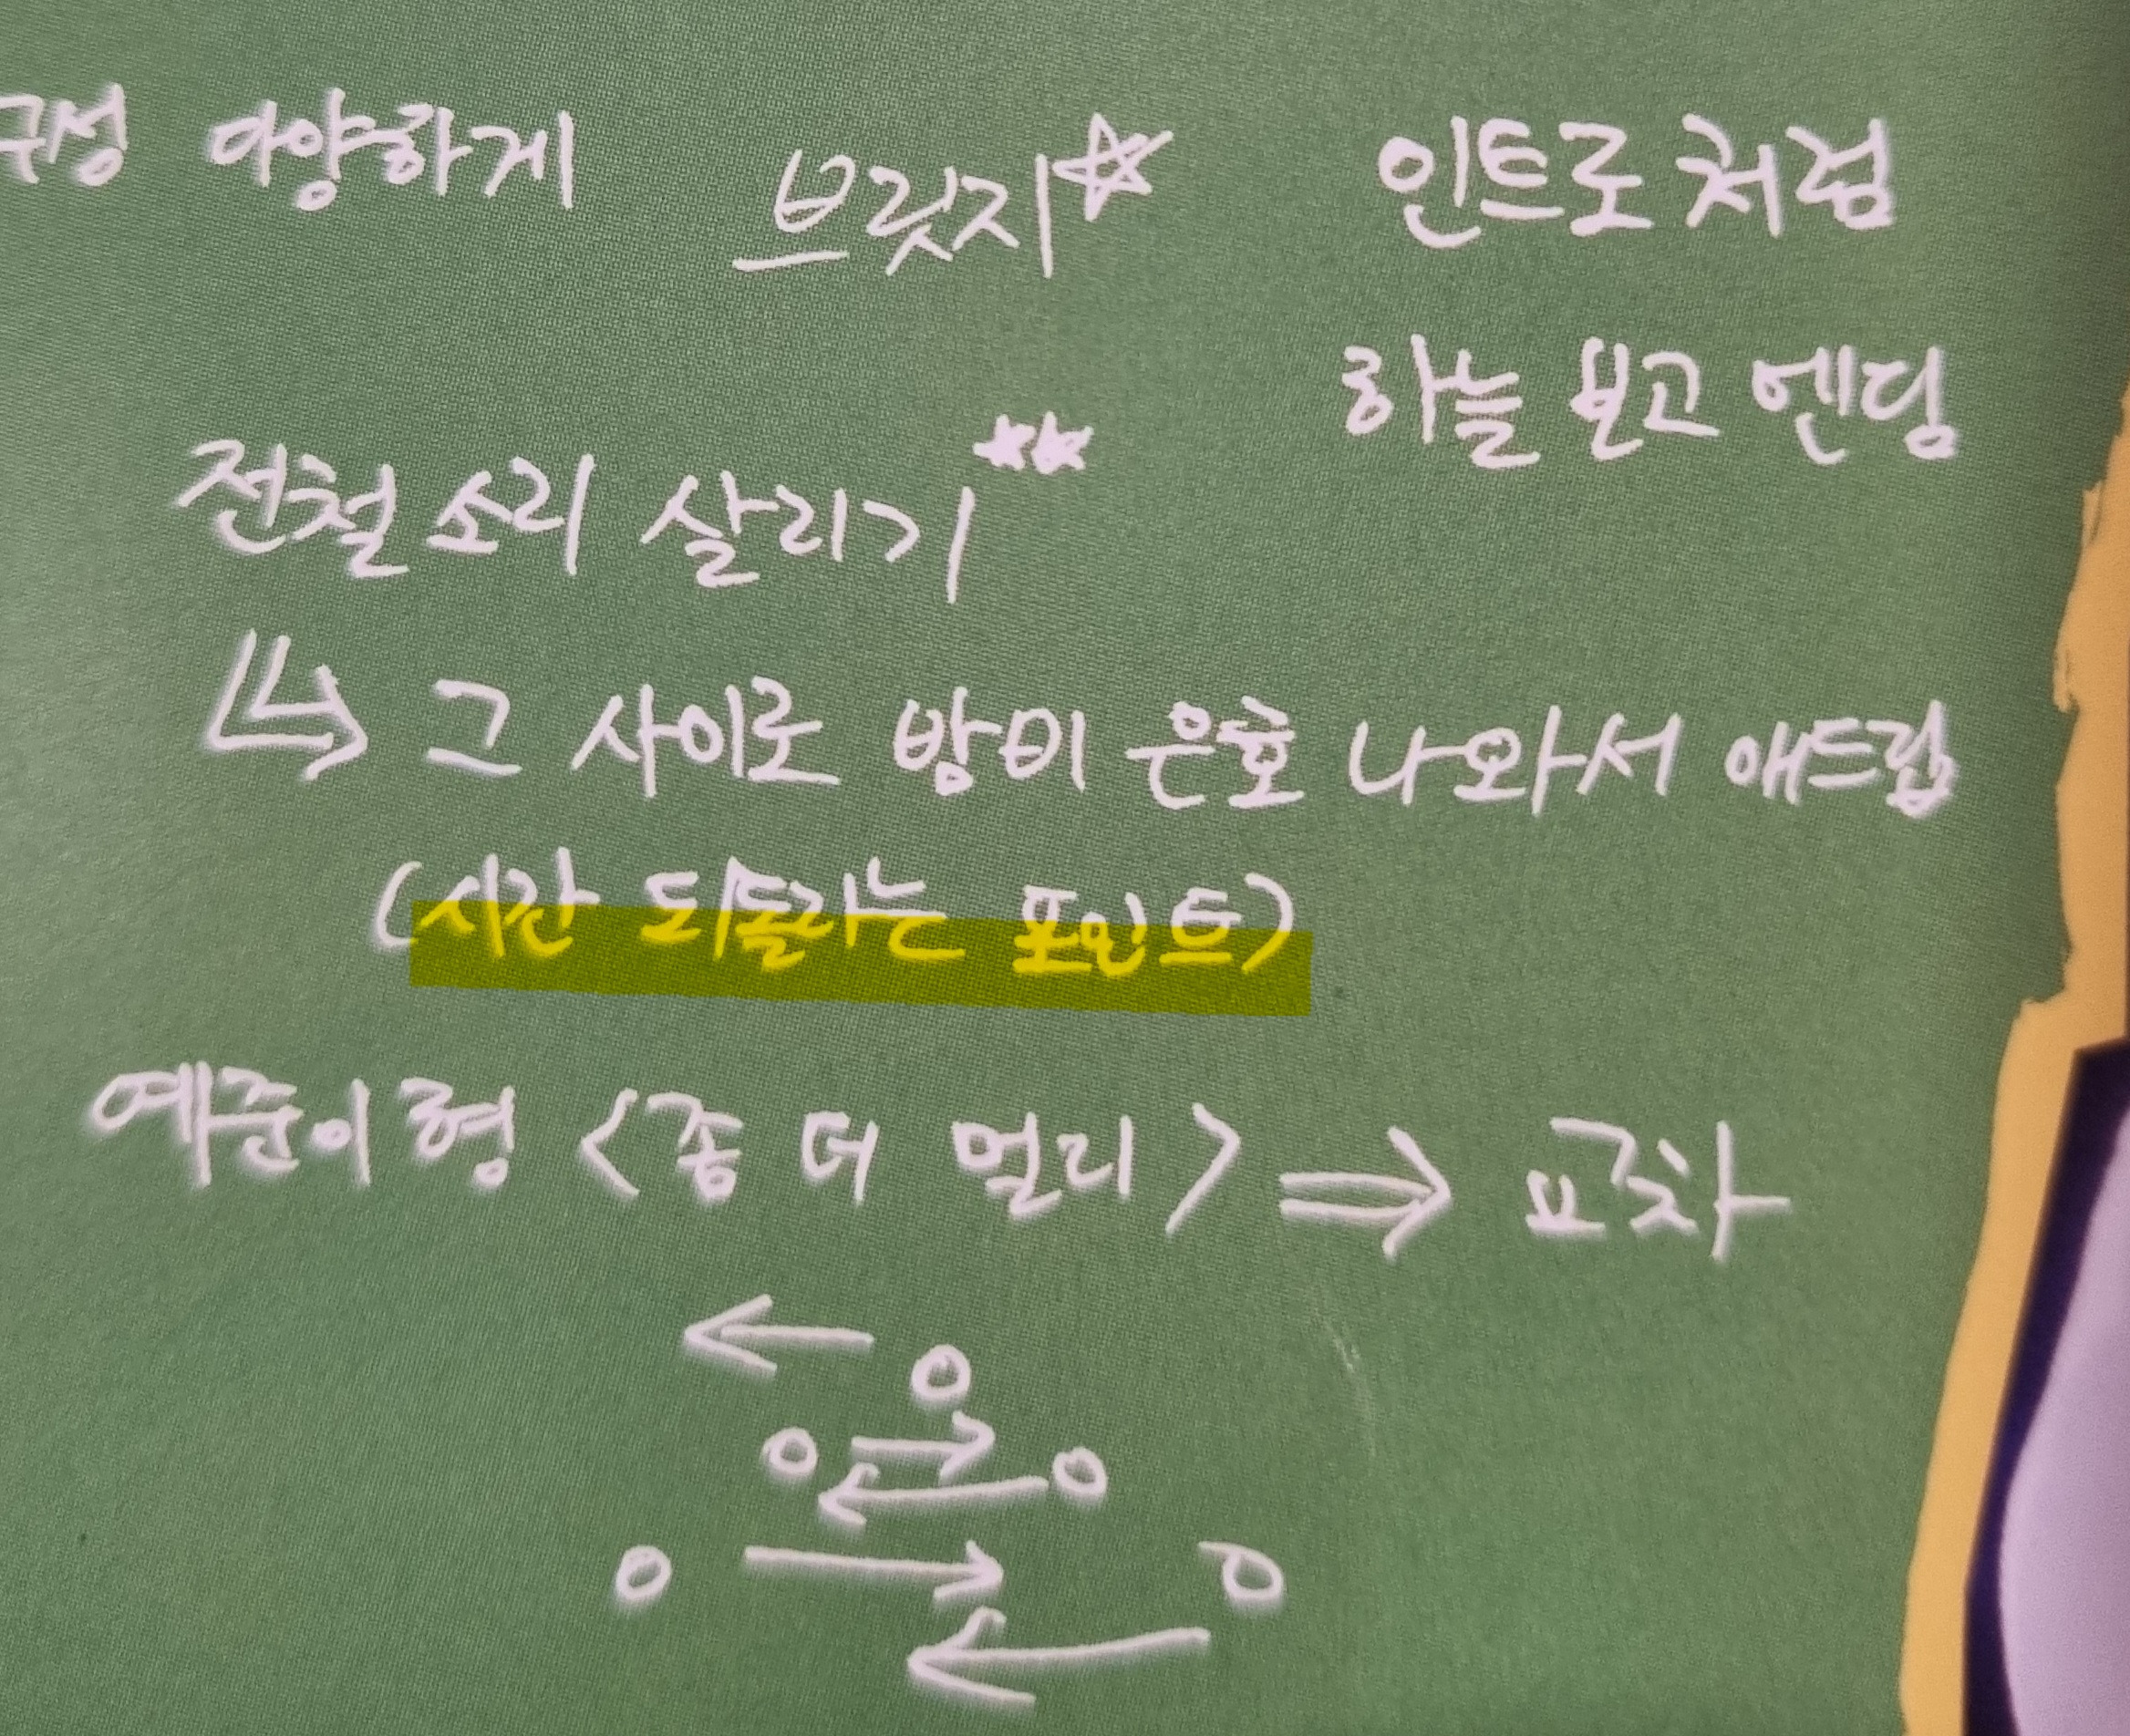 구성 다양하게 브릿지☆ 인트로처럼
하늘 보고 엔딩
전철 소리 살리기★★
그 사이로 밤비 은호 나와서 애드립
(시간 되돌리는 포인트)
예준이형 <좀 더 멀리> ⇒ 교차